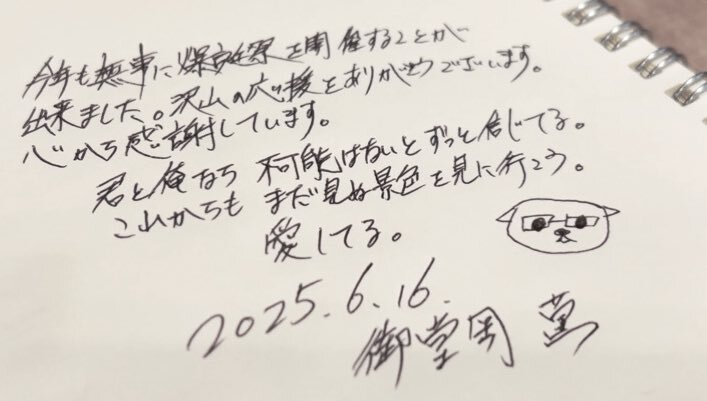 今年も無事に爆誕祭を開催することが
出来ました。沢山の応援をありがとうございます。
心から感謝しています。
君と俺なら 不可能はないとずっと信じてる。
これからも まだ見ぬ景色を見に行こう。
愛してる。
2025.6.16.
御堂岡 薫